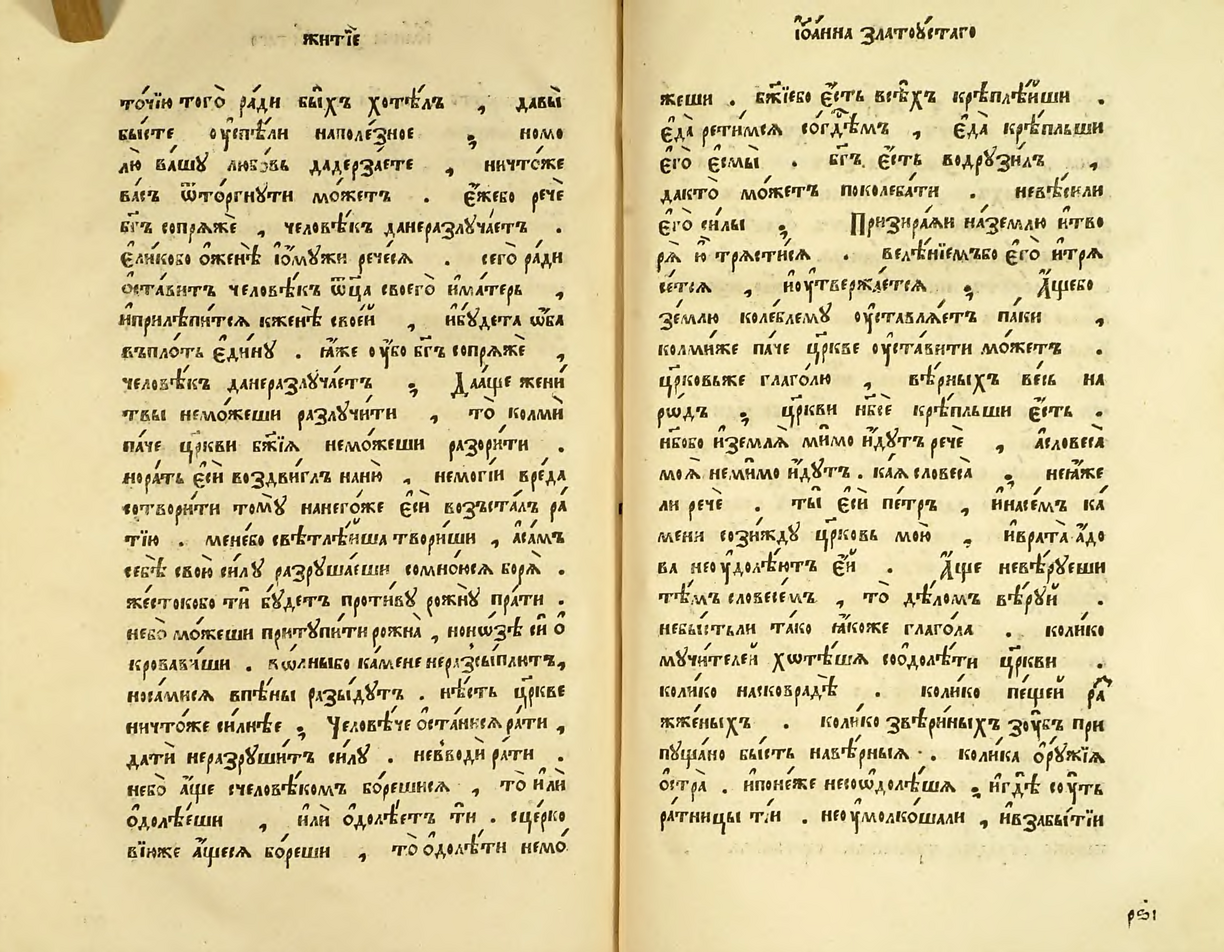 житїе
то́чїю того̀ ра́ди бы́хъ хотѣ́лъ , давы̀
бы́сте оу҆спѣ́ли наполе́зное ; но мо
лю̀ ва́шꙋ любо́вь дадерза́ете , ничто́же
ва́съ ѿто́ргнꙋти мо́жетъ . є҆́жебо рече
бг҃ъ сопрѧже , человѣ́къ данеразлꙋча́етъ .
є҆ли́кобо оженѣ̀ і҆омꙋ́жи рече́сѧ . сего̀ ра́ди
оста́витъ человѣ́къ ѿц҃а своего̀ и҆ма́терь ,
и҆прилѣпи́тсѧ кженѣ̀ свое́й , и҆бꙋ́дета ѻ҆́ба
въпло́ть є҆ди́нꙋ . ꙗ҆́же оу҆́бо бг҃ъ сопрѧже ,
человѣ́къ данеразлꙋча́етъ ; Даа́ще жени́
твы немо́жеши разлꙋчи́ти , то̀ колмѝ
па́че цр҃кви бж҃їѧ немо́жеши разори́ти .
нора́ть є҆сѝ воздви́глъ наню̀ , немогі́й вре́да
сотвори́ти томꙋ̀ нанего́же є҆сѝ возъста́лъ ра́
тїю . менебо свѣтлѣ́йша твори́ши , аса́мъ
себѣ̀ свою̀ си́лꙋ разрꙋша́еши сомно́юсѧ борѧ̀ .
же́стокобо тѝ бꙋ́детъ проти́вꙋ рожнꙋ̀ пра́ти .
небо̀ мо́жеши притꙋпи́ти рожна̀ , нонѡзѣ̀ сѝ о҆
крова́виши . вѡ́лныбо ка́мене неразсы́плютъ,
носа́мисѧ впѣ́ны разы́дꙋтъ . нѣ́сть цр҃кве
ничто́же си́лнѣе ; Человѣ́че оста́нисѧ ра́ти ,
датѝ неразрꙋши́тъ си́лꙋ . невводѝ ра́ти .
небо̀ а҆́ще счеловѣ́комъ бо́решисѧ , то̀ и҆лѝ
о҆долѣ́еши , и҆лѝ о҆долѣ́етъ тѝ . сце́рко
вїюже а҆́щесѧ бо́реши , то̀ о҆долѣ́ти немо
і҆ѡа́нна златоꙋ́стаго
жеши . бж҃їебо є҆́сть всѣ́хъ крѣплѣ́йши .
є҆да̀ рети́мсѧ сог҃дѣмъ , є҆да̀ крѣ́пльши
є҆го̀ є҆смы̀ . бг҃ъ є҆́сть водрꙋзи́лъ ,
дакто̀ мо́жетъ поколеба́ти . невѣ́сили
є҆го̀ си́лы ; Призира́ѧи назе́млю и҆тво
рѧ̀ ю҆̀ трѧсти́сѧ . велѣ́нїемъбо є҆го̀ и҆трѧ
се́тсѧ , и҆оутвержа́етсѧ ; А҆́щебо
зе́млю коле́блемꙋ оу҆ставлѧ́етъ па́ки ,
колми́же па́че цр҃кве оу҆ста́вити мо́жетъ .
цр҃ковьже глаго́лю , вѣ́рныхъ ве́сь на
ро́дъ ; цр҃кви нб҃се крѣ́пльши є҆́сть .
нб҃обо и҆землѧ̀ ми́мо и҆́дꙋтъ речѐ , асловеса̀
моѧ̀ неми́мо и҆́дꙋтъ . ка́ѧ словеса̀ ; неꙗ҆́же
ли речѐ . ты̀ є҆сѝ пе́тръ , и҆насе́мъ ка́
мени сози́ждꙋ цр҃ковь мою̀ , и҆врата̀ а҆́до
ва неоу҆долѣ́ютъ є҆́й . А҆́ще невѣ́рꙋеши
тѣ́мъ словесе́мъ , то̀ дѣ́ломъ вѣ́рꙋй .
небы́стьли та́ко ꙗ҆́коже глаго́ла . коли́ко
мꙋчи́телей хотѣ́шѧ соо҆долѣ́ти цр҃кви .
коли́ко насковрадѣ̀ . коли́ко пеще́й ра
жже́ныхъ . коли́ко звѣри́ныхъ зоу́бъ при
пꙋща́но бы́сть навѣ́рныѧ . коли́ка о҆рꙋ́жїѧ
о́стра̀ . и҆поне́же несоѡдолѣ́шѧ ; и҆гдѣ̀ со́уть
ра́тницы ті́и . неоу҆молко́шали , и҆взабы́тїи
рѕ҃і